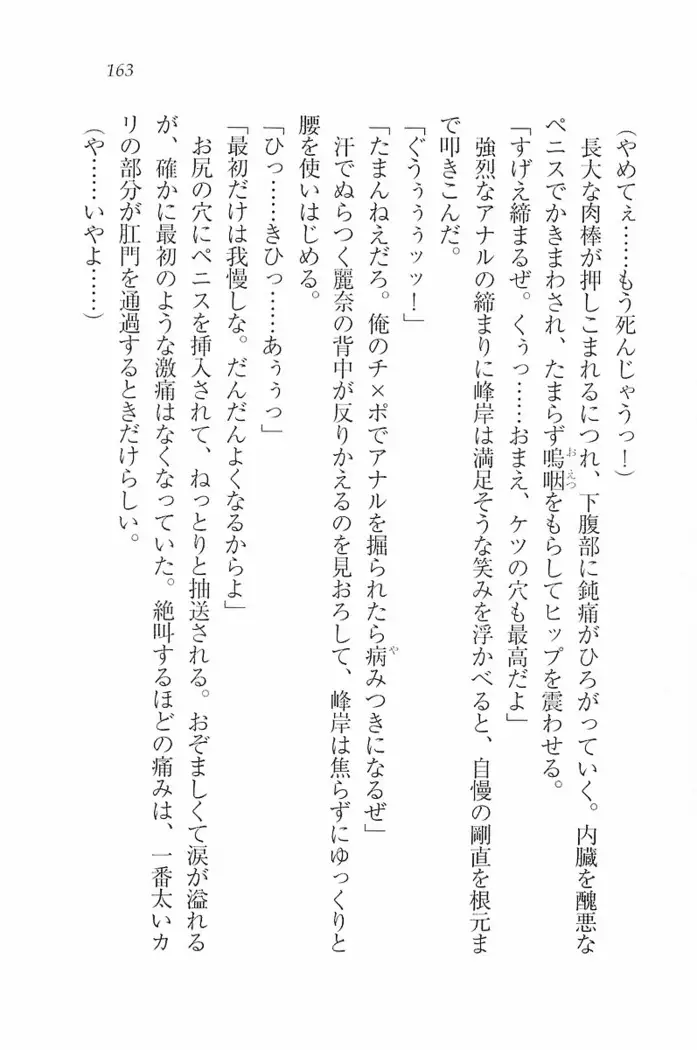 163
(やめてぇ……もう死んじゃうっ！)
長大な肉棒が押しこまれるにつれ、下腹部に鈍痛がひろがっていく。内臓を醜悪な
ペニスでかきまわされ、たまらず嗚咽をもらしてヒップを震わせる。
「すげえ締まるぜ。くぅっ……おまえ、ケツの穴も最高だよ」
強烈なアナルの締まりに峰岸は満足そうな笑みを浮かべると、自慢の剛直を根元ま
で叩きこんだ。
「ぐうぅぅぅッッ！」
「たまんねえだろ。俺のチ×ポでアナルを掘られたら病みつきになるぜ」
汗でぬらつく麗奈の背中が反りかえるのを見おろして、峰岸は焦らずにゆっくりと
腰を使いはじめる。
「ひっ……きひっ……あぅぅっ」
「最初だけは我慢しな。だんだんよくなるからよ」
お尻の穴にペニスを挿入されて、ねっとりと抽送される。おぞましくて涙が溢れる
が、確かに最初のような激痛はなくなっていた。絶叫するほどの痛みは、一番太いカ
リの部分が肛門を通過するときだけらしい。
(や……いやよ……)